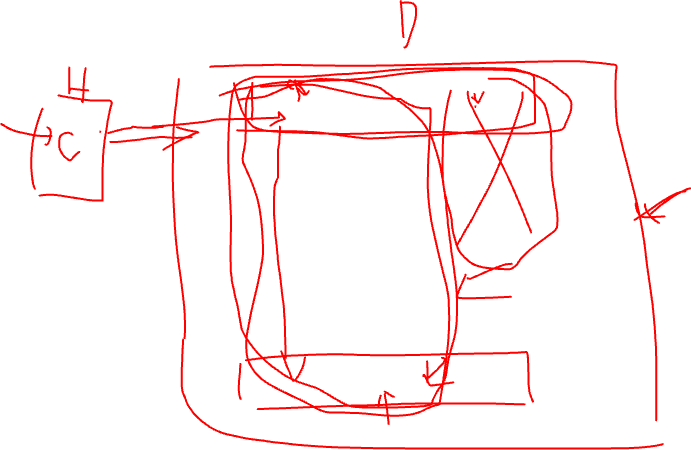 D
H
C